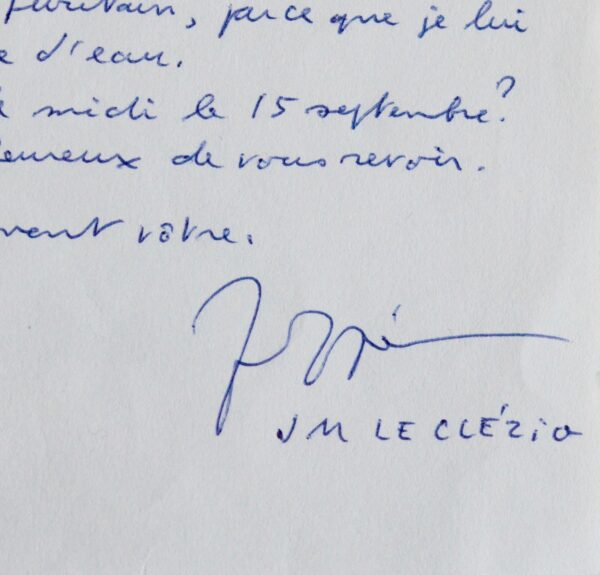 puritain, parce que je lui
e d'eau.
midi le 15 septembre?
heureux de vous revoir.
ment vôtre.
JM LE CLÉZIO